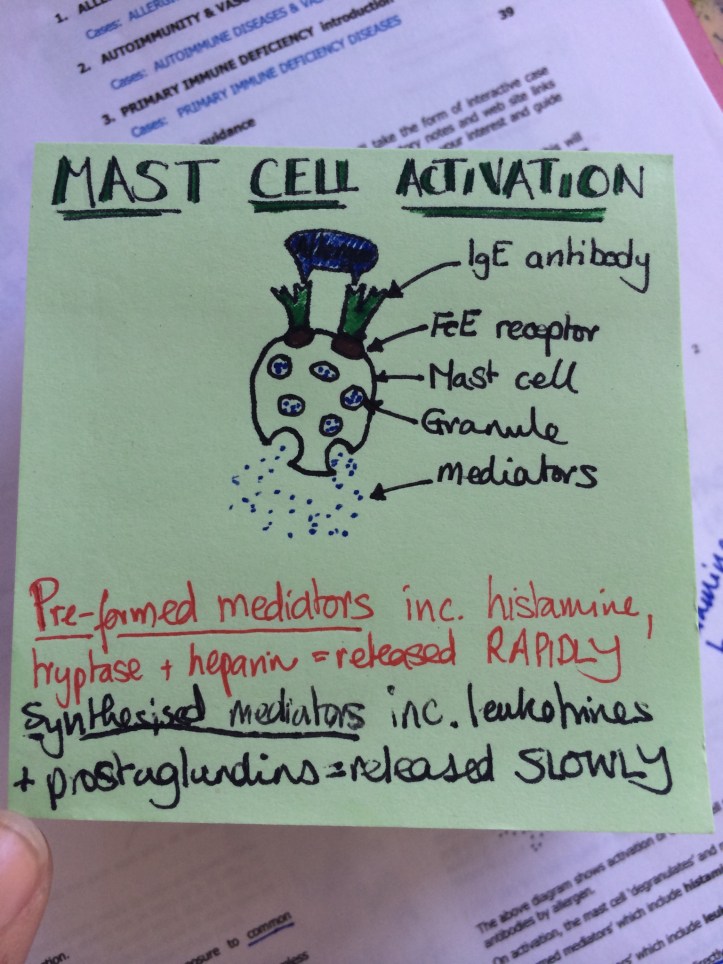 1.
Cases:
2. AUTOIMMUNITY &
Cases: AUTOIMMUNE DISEASES &
3. PRIMARY IMMUNE DEFICIENCY introduction
39
Cases: PRIMARY IMMUNE DEFICIENCY DISEASES
guidance
take the form of interactive case
notes and web site links
interest and guide
will
MAST CELL ACTIVATION
IgE antibody
FcE receptor
Mast cell
Granule
mediators
Pre-formed mediators inc. histamine,
tryptase + heparin = released RAPIDLY
Synthesised mediators inc. leukotrines
+ prostaglandins = released SLOWLY
2
The above diagram shows activation
antibodies by allergen.
On activation, the mast cell 'degranulates' and
mediators' which include
mediators' which include
to common